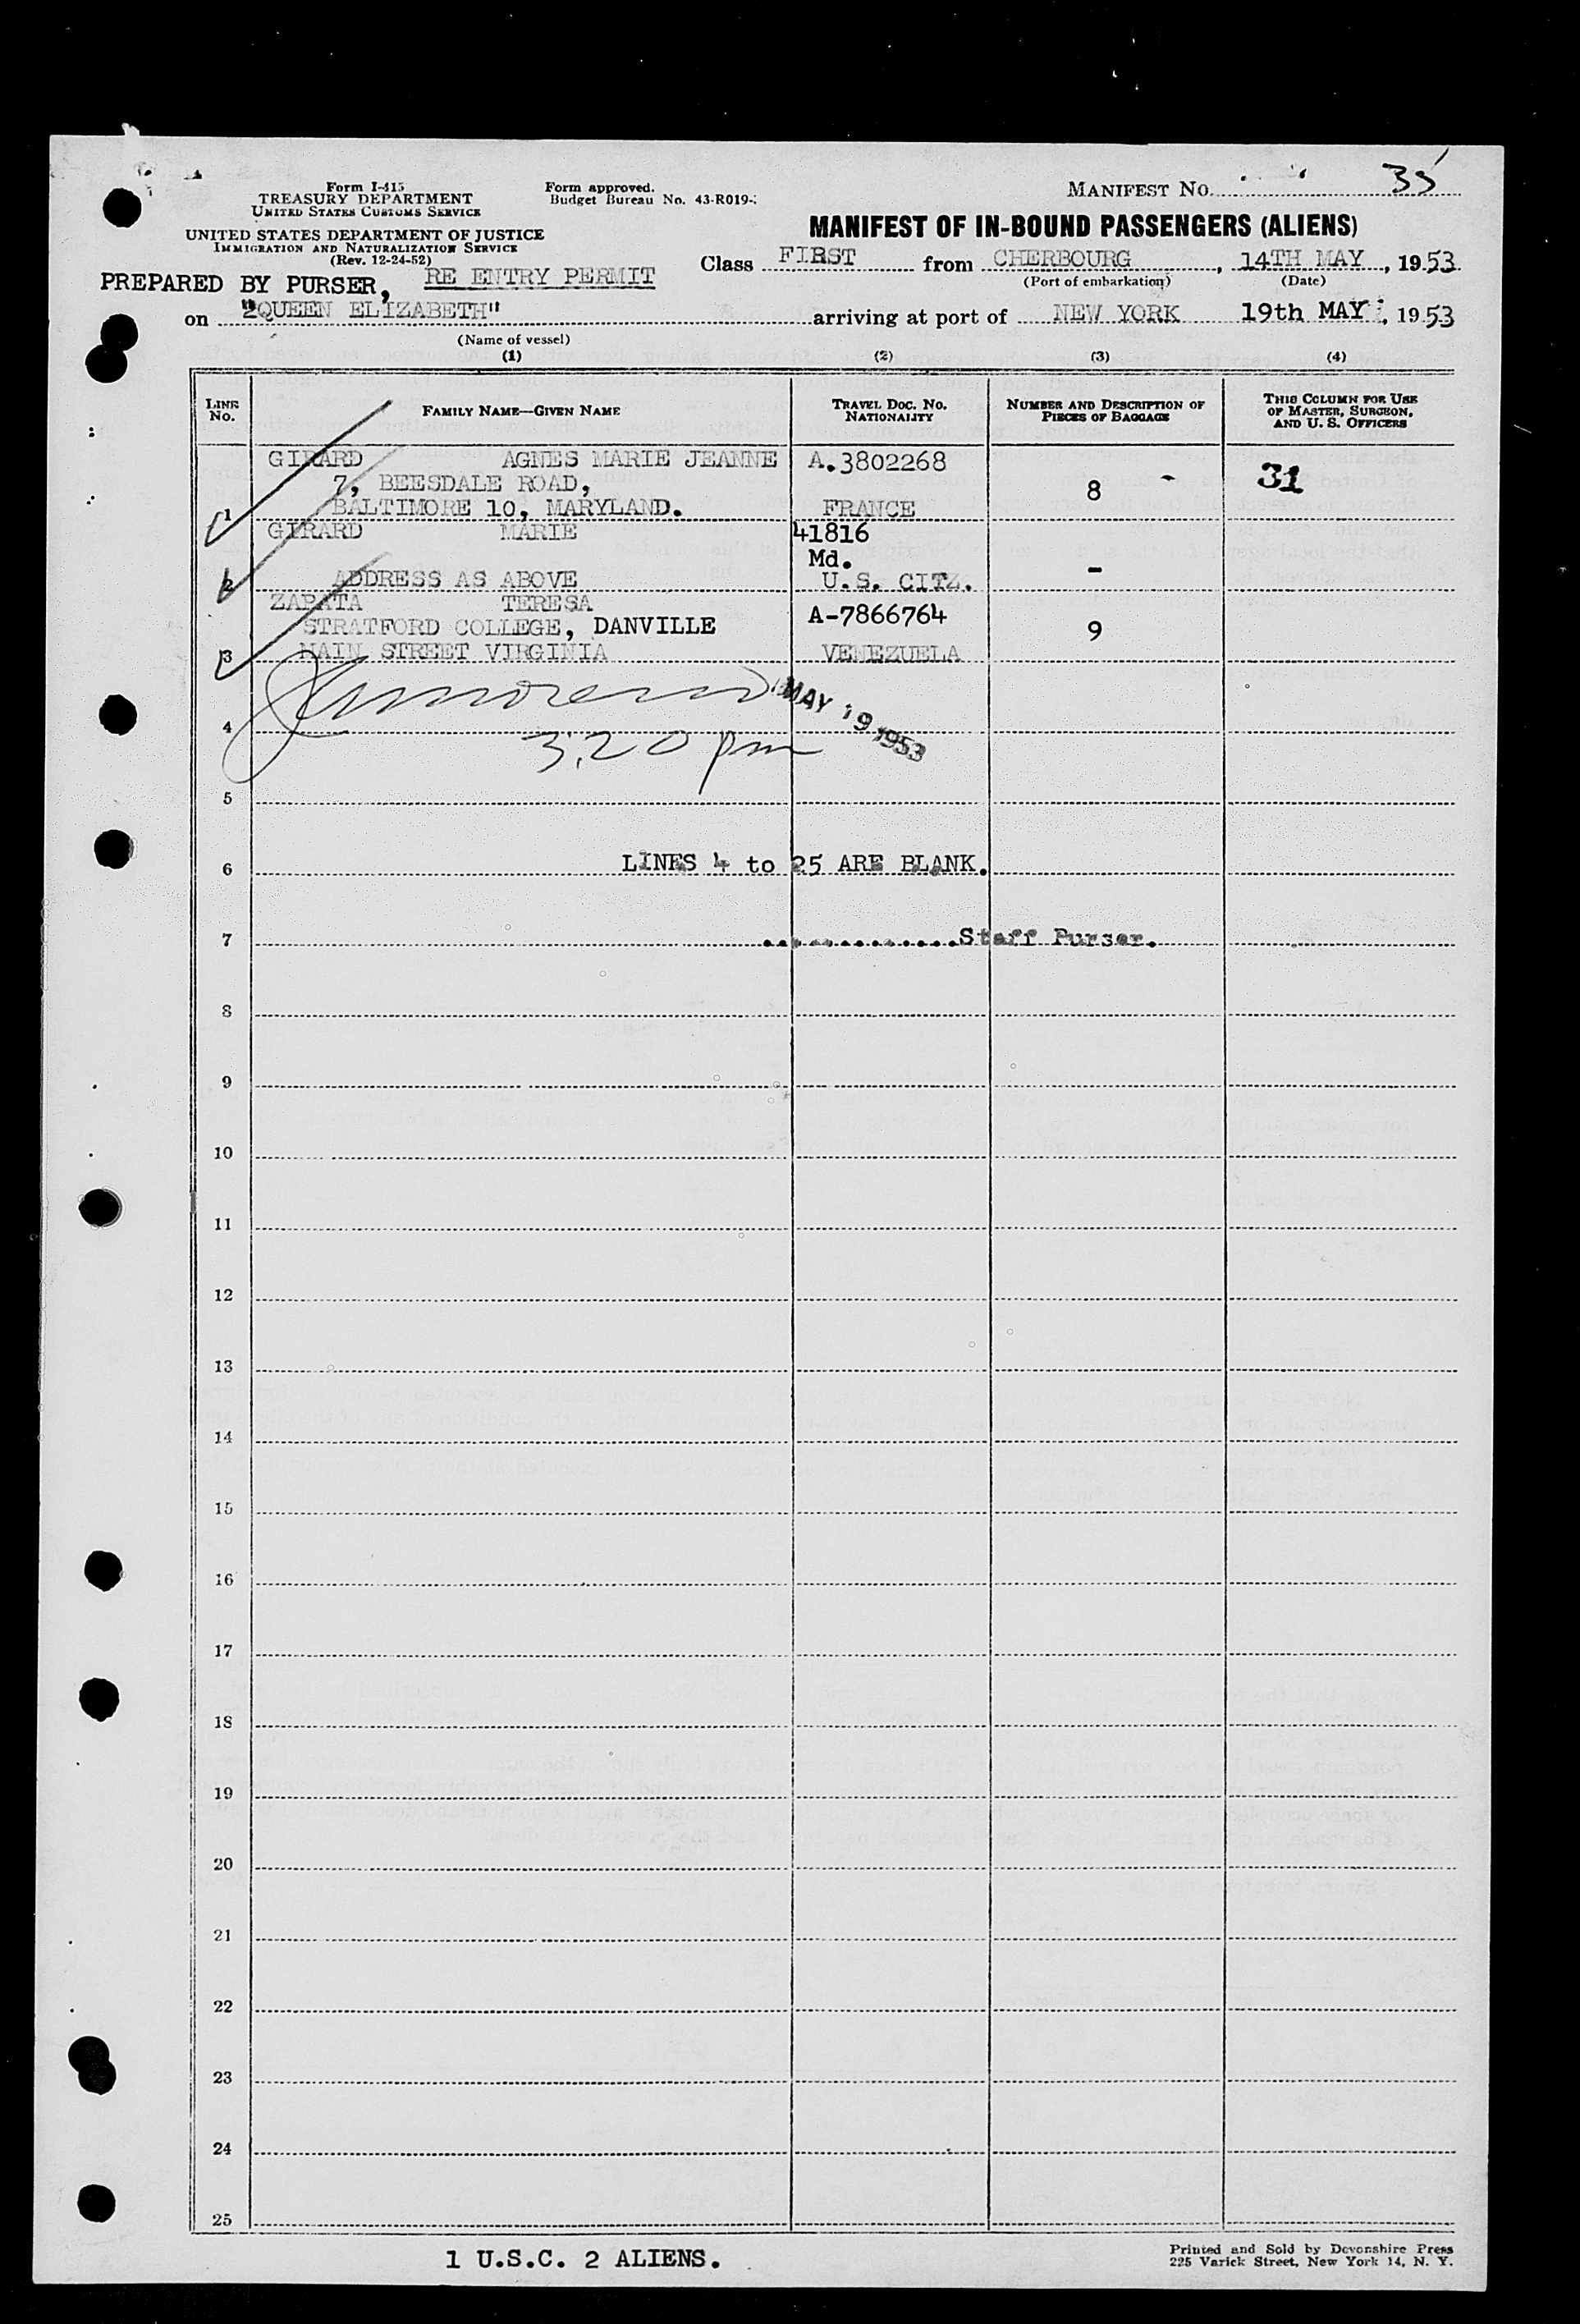 Form I-415
TREASURY DEPARTMENT
UNITED STATES CUSTOMS SERVICE
Form approved.
Budget Bureau No. 43-R019-
MANIFEST NO. 35
UNITED STATES DEPARTMENT OF JUSTICE
IMMIGRATION AND NATURALIZATION SERVICE
(Rev. 12-24-52)
MANIFEST OF IN-BOUND PASSENGERS (ALIENS)
PREPARED BY PURSER, RE ENTRY PERMIT
Class FIRST from CHERBOURG, 14TH MAY, 1953
(Port of embarkation) (Date)
on "QUEEN ELIZABETH" arriving at port of NEW YORK 19th MAY, 1953
(Name of vessel)
(1) (2) (3) (4)
LINE NO. FAMILY NAME—GIVEN NAME TRAVEL DOC. NO. NATIONALITY NUMBER AND DESCRIPTION OF PIECES OF BAGGAGE THIS COLUMN FOR USE OF MASTER, SURGEON, AND U. S. OFFICERS
GIRARD AGNES MARIE JEANNE A.3802268
7, BEESDALE ROAD, 8 - 31
1 BALTIMORE 10, MARYLAND. FRANCE
GIRARD MARIE 41816
Md. -
2 ADDRESS AS ABOVE U.S. CITZ.
ZAPATA TERESA A-7866764
STRATFORD COLLEGE, DANVILLE 9
3 MAIN STREET VIRGINIA VENEZUELA
MAY 19 1953
4
3.20 pm
5
6 LINES 4 to 25 ARE BLANK.
7 ..............Staff Purser.
8
9
10
11
12
13
14
15
16
17
18
19
20
21
22
23
24
25
1 U.S.C. 2 ALIENS.
Printed and Sold by Devonshire Press
225 Varick Street, New York 14, N. Y.